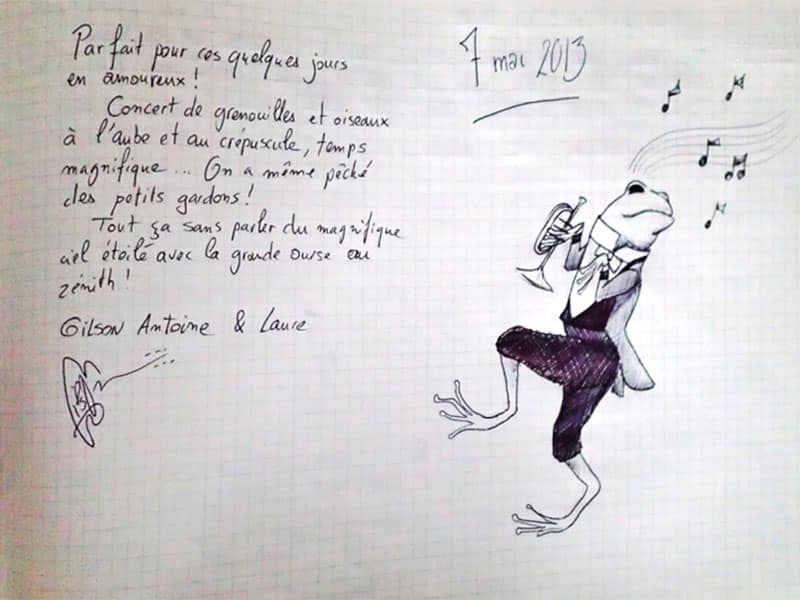 Parfait pour ces quelques jours
en amoureux !
Concert de grenouilles et oiseaux
à l'aube et au crépuscule, temps
magnifique ... On a même pêché
des petits gardons !
Tout ça sans parler du magnifique
ciel étoilé avec la grande ourse au
zénith !
Gilson Antoine & Laure
7 mai 2013